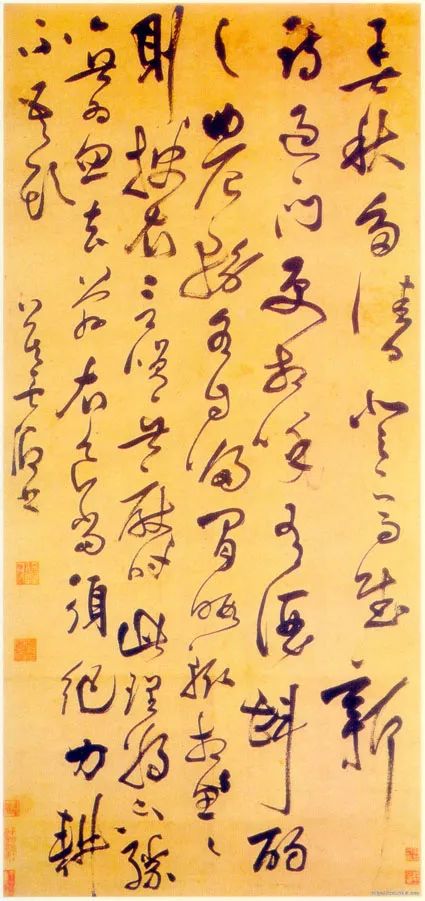 春秋多佳日登高賦新
詩過門更相呼有酒斟酌
之農務各自歸閒暇輒相思〻
則披衣言笑無厭時此理將不勝
無為忽去茲衣食當須紀力耕
不吾欺